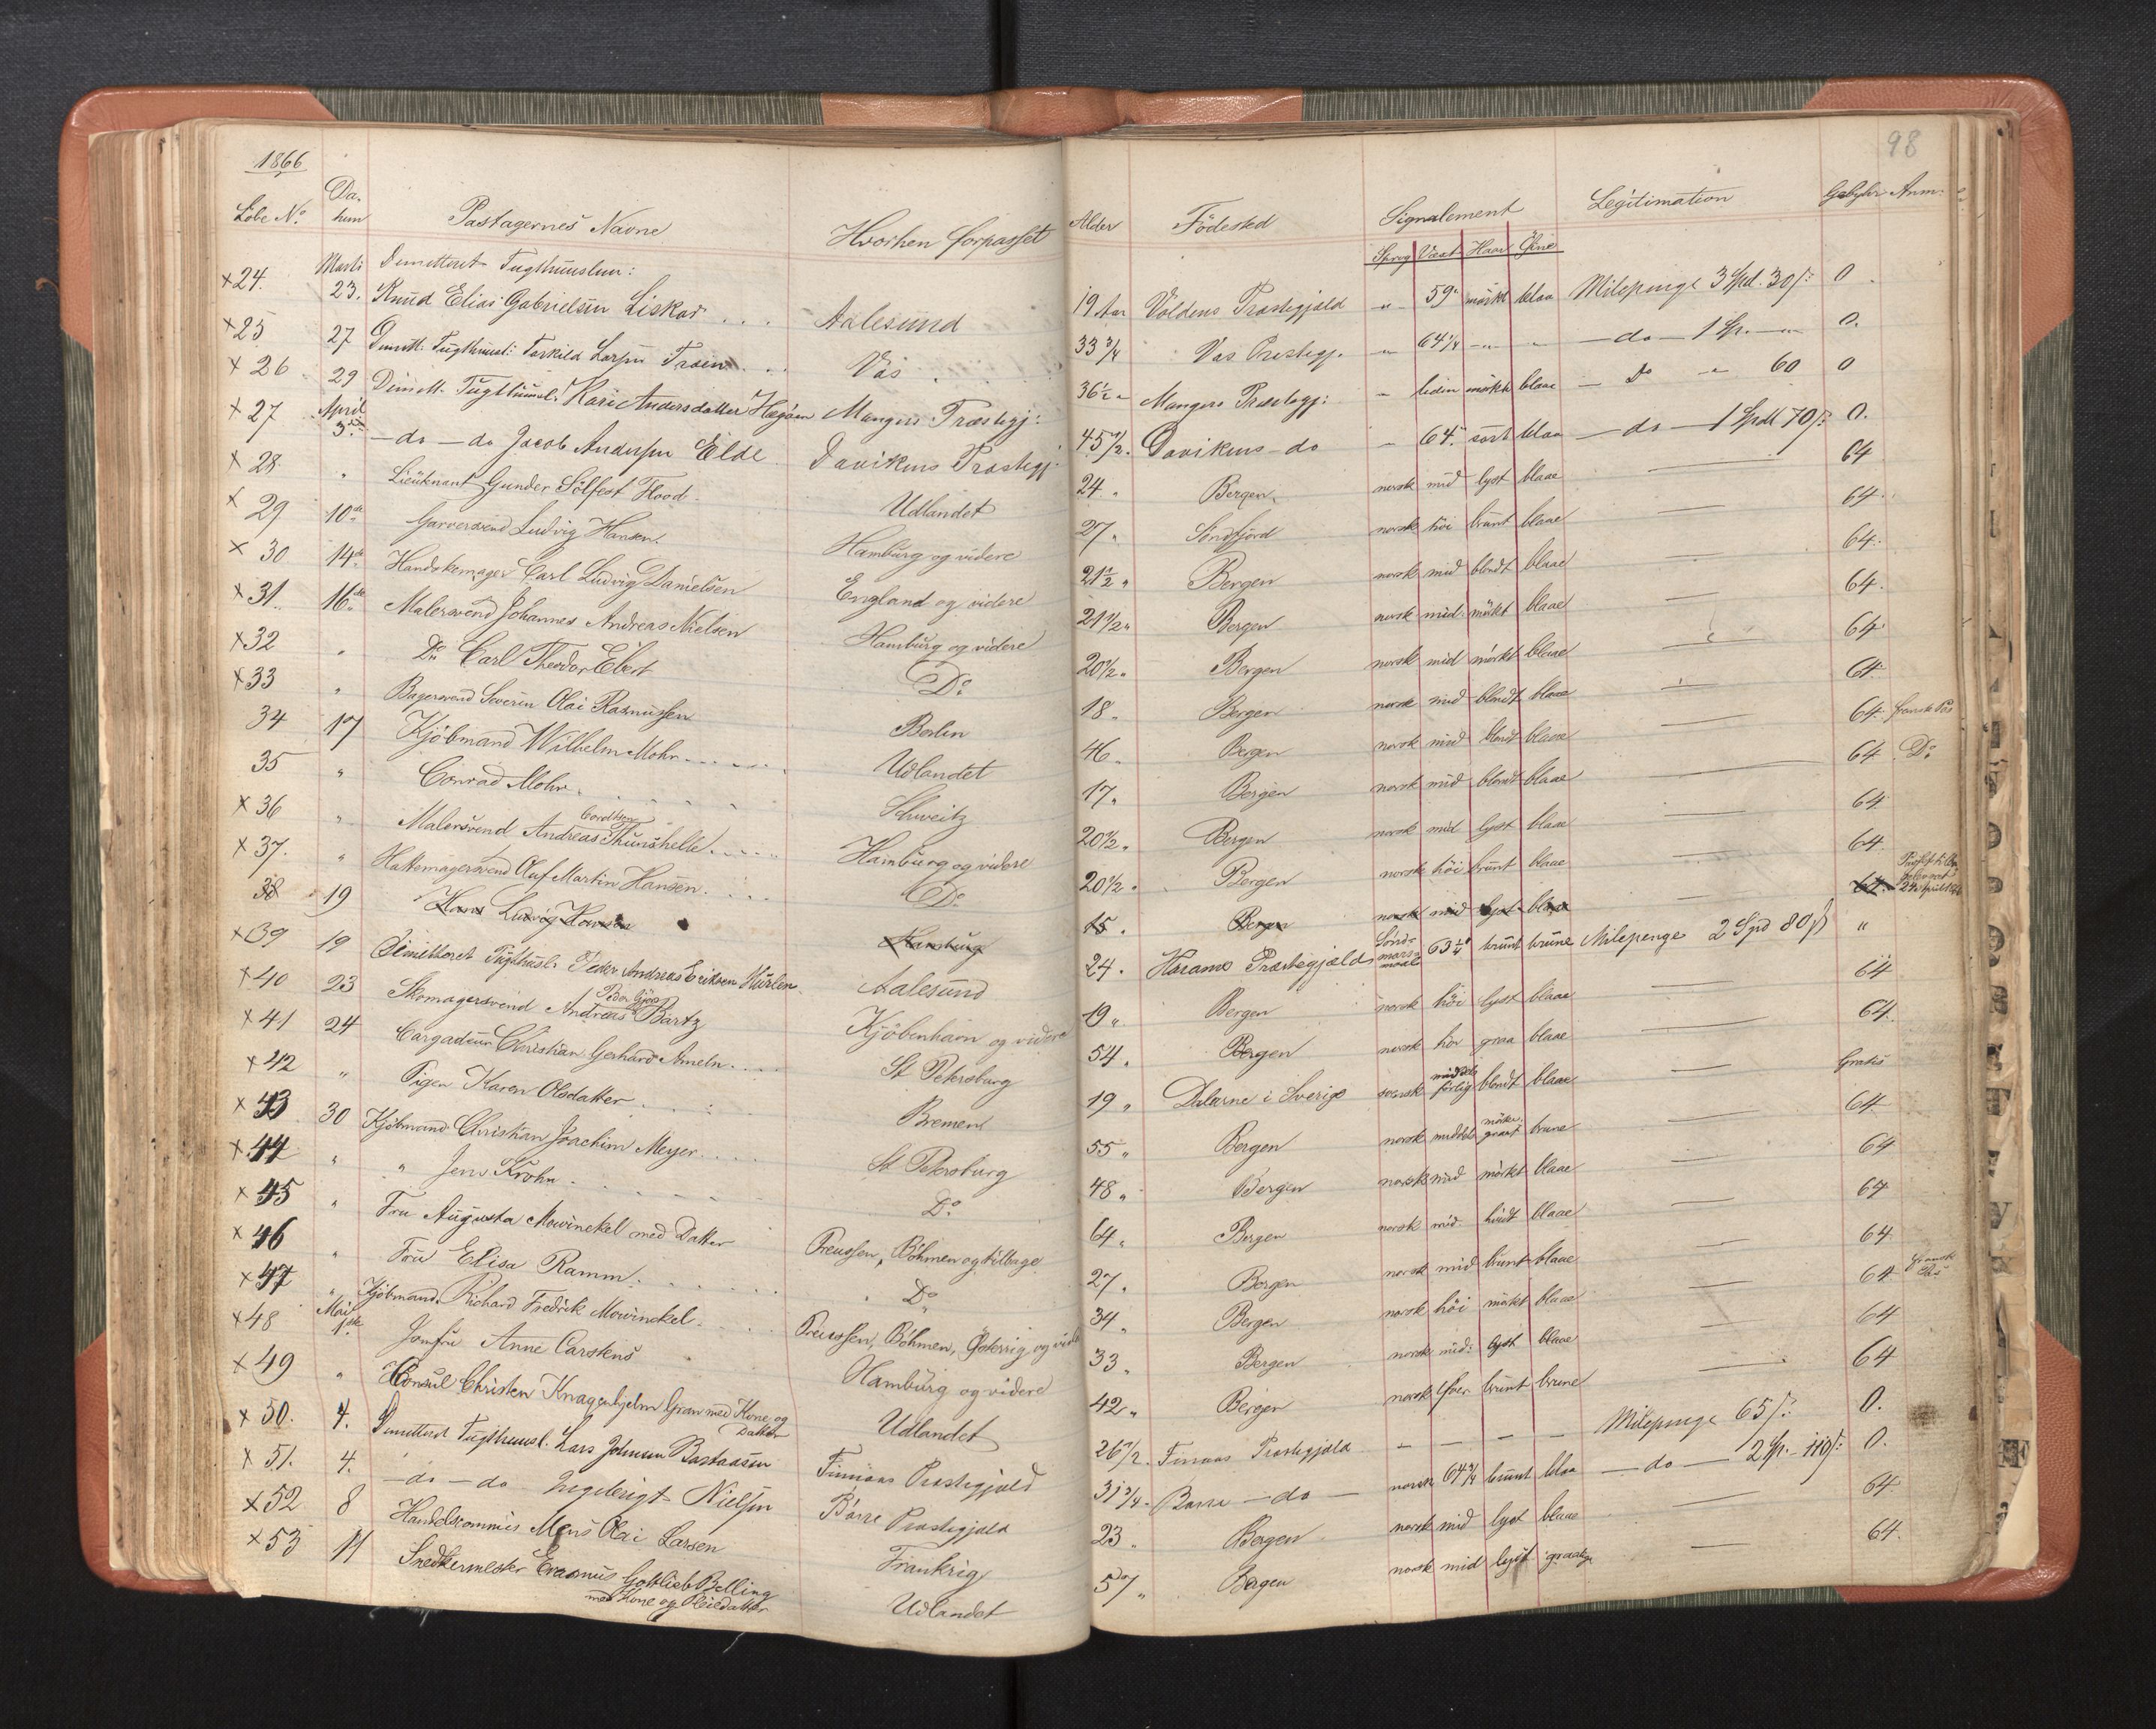 1866
98
Løbe No. Da- tum Passagernes Navne Hvorhen forpasset Alder Födested Signalement Legitimation Gebyhr Anm:
Sprog Væxt Haar Öine
Marti Dimitteret Tugthuuslem:
×24. 23. Knud Elias Gabrielsen Liskar Aalesund 19 Aar Voldens Præstegjæld " 59" mörkt blaa Milepenge 3 Spd. 30 ß: 0
×25 27 Dimitt: Tugthuusl: Torkild Larsen Vos 33 3/4 Vos Præstegj. " 64 1/4 " " do 1 Sp. " 0.
×26 29 Dimitt. Tugthuusl. Kari Andersdatter Mangers Præstegj: 36 1/2 " Mangers Præstegj: " liden mörkt blaae Do " 60 0
×27 April 3die do do Jacob Andersen Elde Davikens Præstegj. 45 1/2. Davikens do " 64. sort blaa do 1 Spdl 70 ß: 0.
×28 " Lieutenant Gunder Sölfest Flood Udlandet 24 " Bergen norsk mid lyst blaae 64
×29 10de Garversvend Ludvig Hansen. Hamburg og videre 27 " Söndfjord norsk höi brunt blaae 64.
×30 14de Handskemager Carl Ludvig Danielsen England og videre 21 1/2 " Bergen norsk mid blondt blaae 64.
×31. 16de Malersvend Johannes Andreas Nielsen Hamburg og videre 21 1/2 " Bergen norsk mid. mörkt blaae 64.
×32 " Do Carl Theodor Ebert Do 20 1/2 " Bergen norsk mid mörkt blaae 64
×33 " Bagersvend Severin Olai Rasmussen Berlin 18 " Bergen norsk mid blondt blaae 64.
34 17 Kjöbmand Wilhelm Mohr Udlandet 46 " Bergen norsk mid blondt blaae 64. fransk Pas
35 " Conrad Mohr Schweitz 17 " Bergen norsk mid blondt blaae 64 Do
×36 " Malersvend Andreas Thunshelle Hamburg og videre 20 1/2 " Bergen norsk mid lyst blaae 64
×37. " Hattemagersvend Oluf Martin Hansen Do 20 1/2 " Bergen norsk höi brunt blaae 64
38 19 Hans Ludvig Hansen Hamburg 15 " Bergen norsk mid lyst blaae 64.
×39 19 Dimitteret Tugthusl. Peder Andreas Eriksen Aalesund 24 " Harams Præstegjæld Sönd- mørs- maal 63 1/4" brunt brune Milepenge 2 Spd 80 ß "
×40 23 Skomagersvend Andreas Bartz Kjöbenhavn og videre 19 " Bergen norsk höi lyst blaae 64
×41 24 Cargadeur Christian Gerhard Ameln St Petersburg 54 " Bergen norsk höi graa blaae 64.
×42 " Pigen Karen Olsdatter Bremen 19 " Dalarne i Sverige svensk blondt blaae Gratis
×43 30 Kjöbmand Christian Joachim Meyer St Petersburg 55 " Bergen norsk middel brune 64
×44 " " Jens Krohn Do 48 " Bergen norsk mid mörket blaae 64
×45 " Fru Augusta Mowinckel med Datter Preussen, Böhmen og tilbage 64 " Bergen norsk mid. hvidt blaae 64
×46 " Fru Elisa Ramm Do 27 " Bergen norsk mid brunt blaae 64
×47 " Kjöbmand Richard Fredrik Mowinckel Preussen, Böhmen, Österrig og videre 34 " Bergen norsk höi mörket blaae 64 fransk Pas
×48 Mai 1ste Jomfru Anne Carstens Hamburg og videre 33 " Bergen norsk mid: lyst blaae 64
×49 " Consul Christen Knagenhjelm Gran med Kone og Datter Udlandet 42 " Bergen norsk över brunt brune 64
×50. 4. Dimitteret Tugthuusl. Lars Johnsen Finnaas Præstegjæld 26 1/2. Finnaas Præstegjæld Milepenge 65 ß: 0.
×51. 4. do do Ingebrigt Nielsen Borre Præstegjæld 31 3/4 Borre do norsk 64 3/4 brunt blaa do 2 Sp. 110 ß: 0.
×52 8 Handelscommis Mons Olai Larsen Frankrig 23 " Bergen norsk mid lyst blaae 64
×53 11 Snedkermester Erasmus Gottlieb Belling med Kone og Pleiedatter Udlandet 57 " Bergen norsk mid lyst graalige 64.